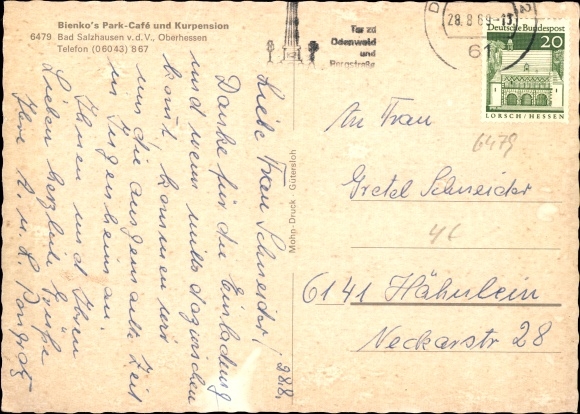 Bienko's Park-Café und Kurpension
6479 Bad Salzhausen v. d. V., Oberhessen
Telefon (06043) 867
28.8.
Liebe Frau Schneider!
Danke für die Einladung
und wenn nichts dazwischen
kommt kommen wir
um die ausgemachte Zeit
in Jugenheim an.
Ihnen und Ihren
Lieben herzliche Grüße
Ihre A. u. L.
Mohn-Druck · Gütersloh
Tor zu
Odenwald
und
Bergstraße
28.8.69-13
61
Deutsche Bundespost
20
LORSCH/HESSEN
An Frau
6479
Gretel Schneider
6141 Hähnlein
Neckarstr 28